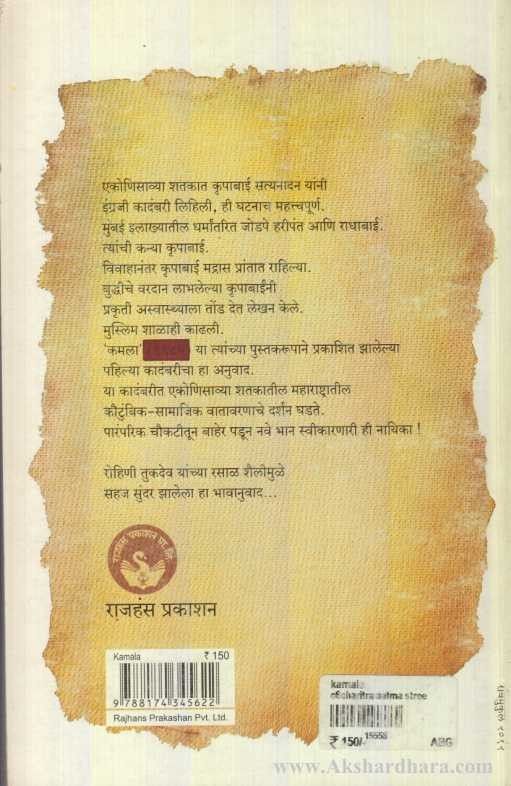 एकोणिसाव्या शतकात कृपाबाई सत्यनादन यांनी
इंग्रजी कादंबरी लिहिली, ही घटनाच महत्त्वपूर्ण.
मुंबई इलाख्यातील धर्मांतरित जोडपे हरीपंत आणि राधाबाई.
त्यांची कन्या कृपाबाई.
विवाहानंतर कृपाबाई मद्रास प्रांतात राहिल्या.
बुद्धीचे वरदान लाभलेल्या कृपाबाईंनी
प्रकृती अस्वास्थ्याला तोंड देत लेखन केले.
मुस्लिम शाळाही काढली.
'कमला' या त्यांच्या पुस्तकरूपाने प्रकाशित झालेल्या
पहिल्या कादंबरीचा हा अनुवाद.
या कादंबरीत एकोणिसाव्या शतकातील महाराष्ट्रातील
कौटुंबिक-सामाजिक वातावरणाचे दर्शन घडते.
पारंपरिक चौकटीतून बाहेर पडून नवे भान स्वीकारणारी ही नायिका !
रोहिणी तुकदेव यांच्या रसाळ शैलीमुळे
सहज सुंदर झालेला हा भावानुवाद...
राजहंस प्रकाशन प्रा.लि.
राजहंस प्रकाशन
Kamala ₹ 150
9 788174 345622
Rajhans Prakashan Pvt. Ltd.
kamala
c6charitra aatma stree
₹ 150/- 15558 ABG
www.Akshardhara.com